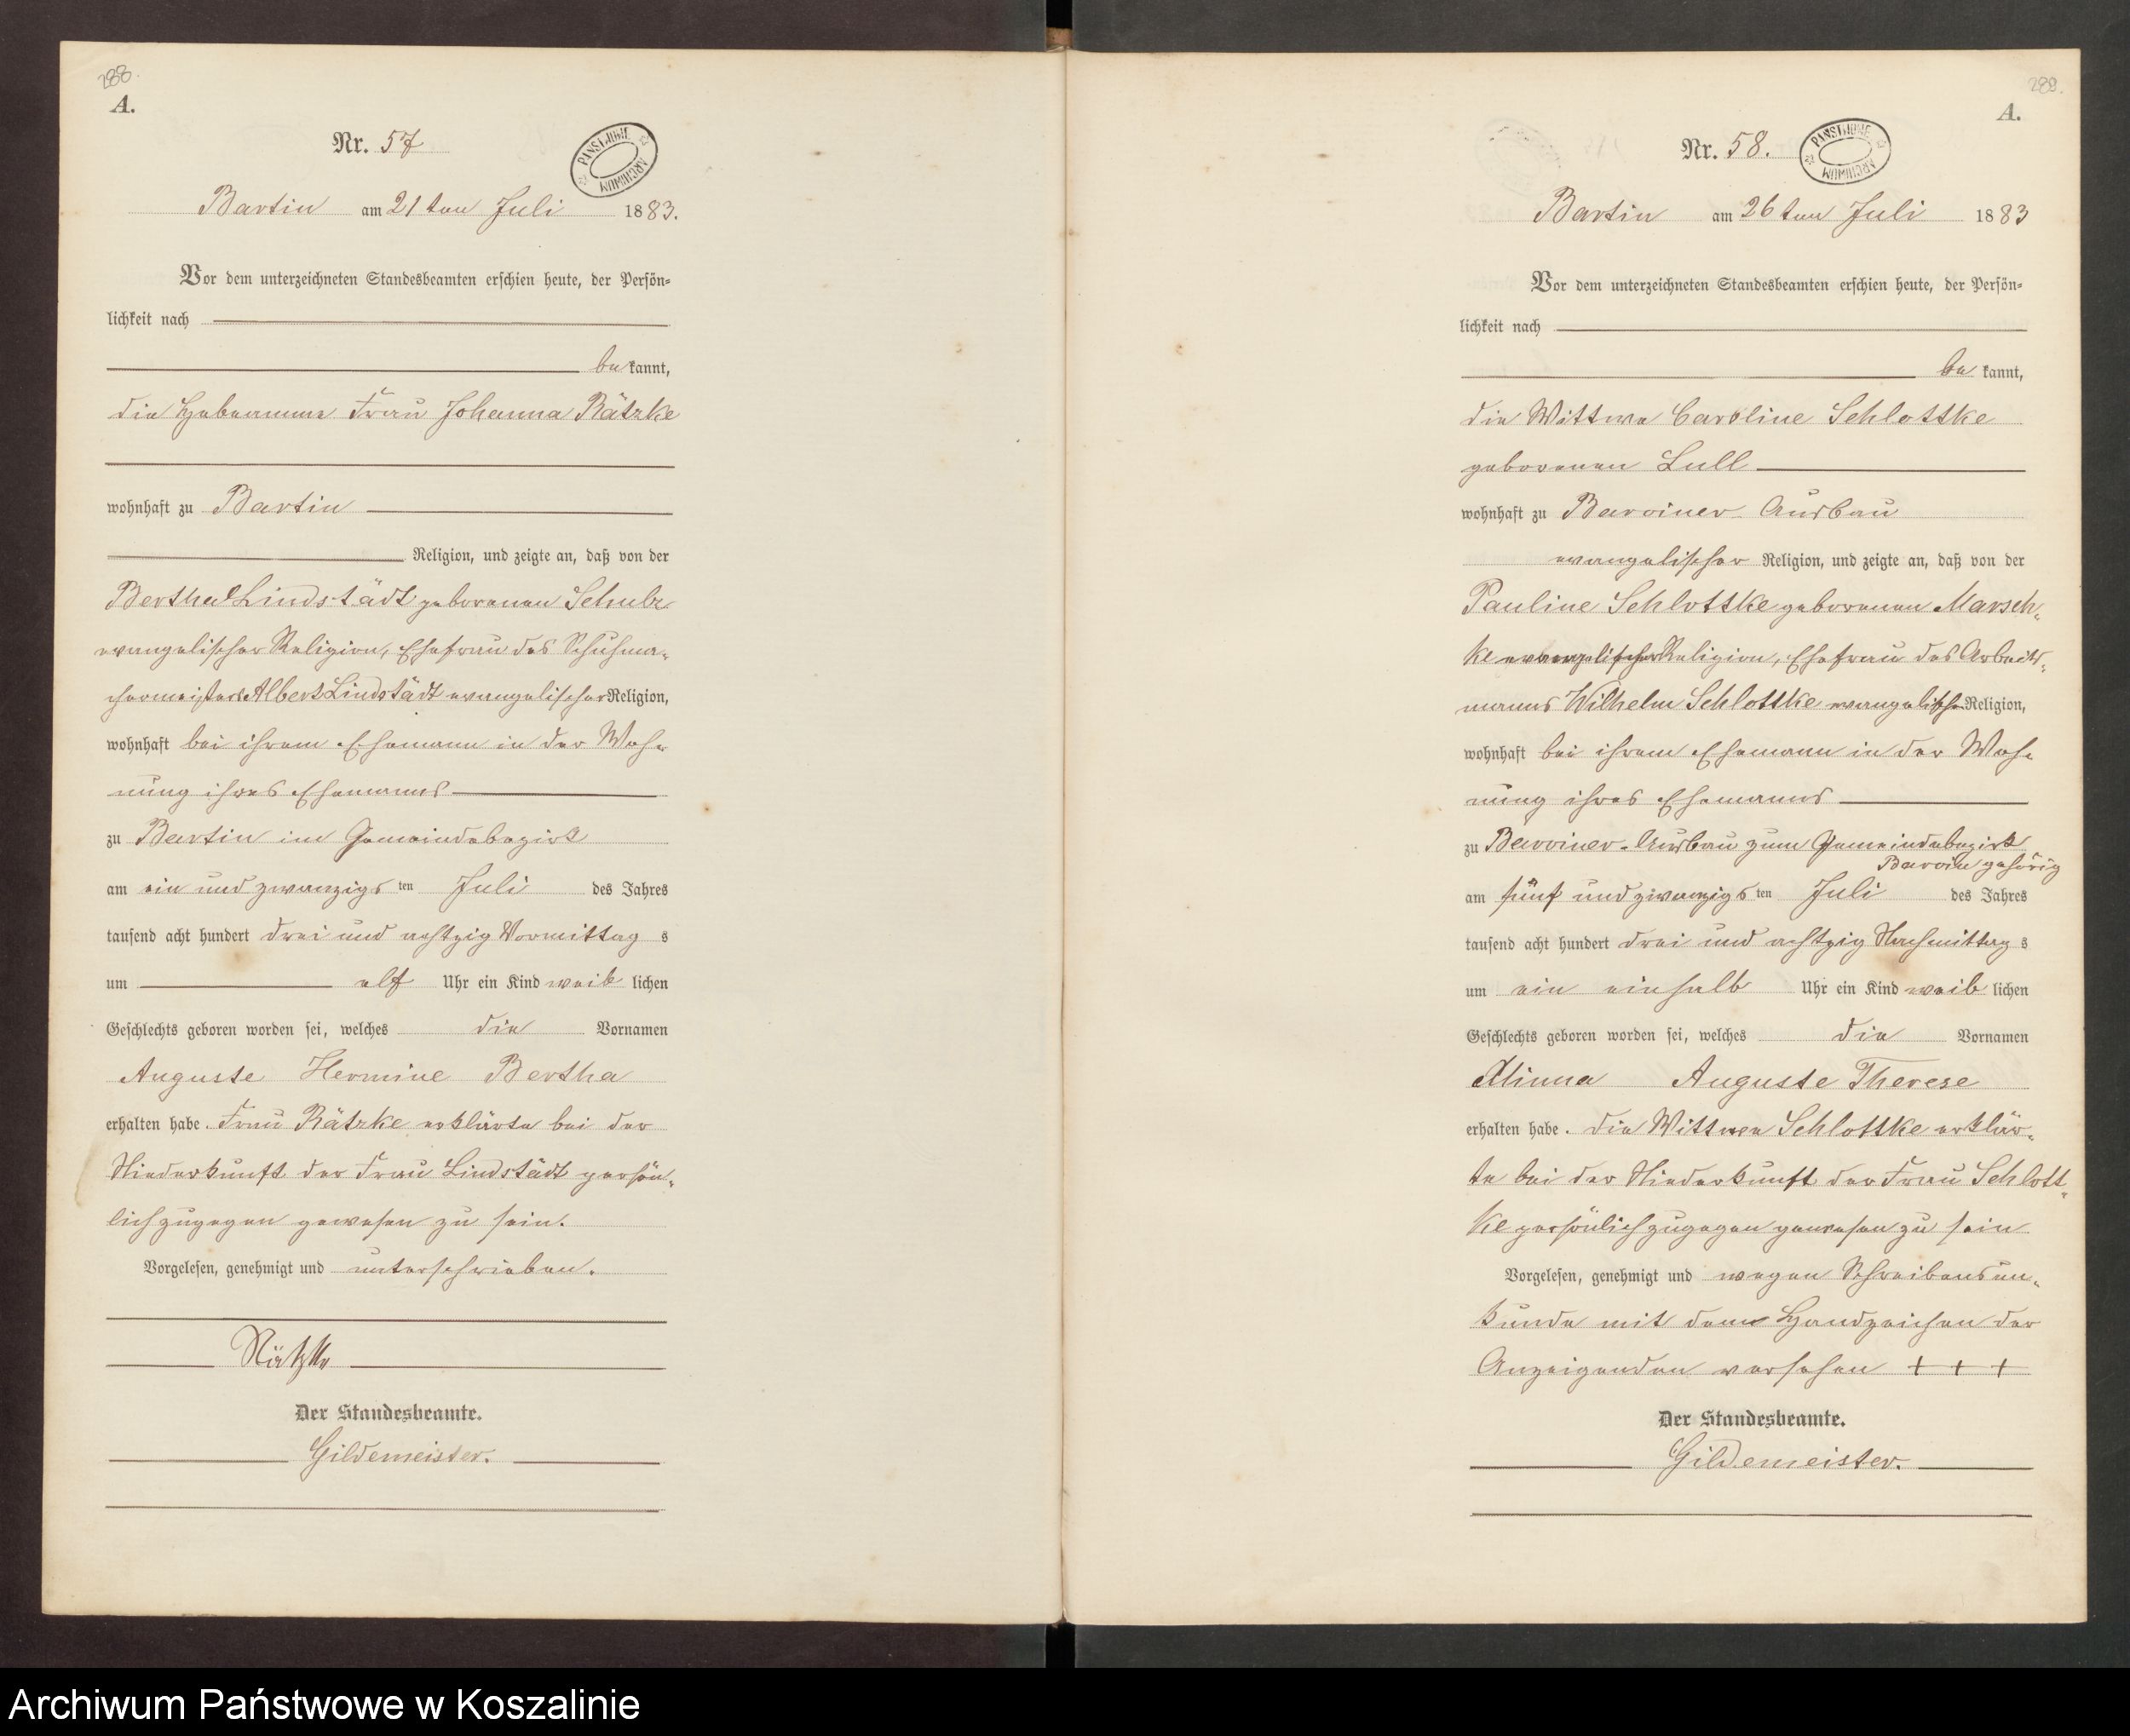 288.
A.
Nr. 57
PAŃSTWOWE ARCHIWUM
Bartin am 21 ten Juli 1883.
Vor dem unterzeichneten Standesbeamten erschien heute, der Persön-
lichkeit nach
bekannt,
die Hebeamme Frau Johanna Rätzke
wohnhaft zu Bartin
Religion, und zeigte an, daß von der
Bertha Lindstädt geborenen Schulz
evangelischer Religion, Ehefrau des Schuhma-
chermeisters Albert Lindstädt evangelischer Religion,
wohnhaft bei ihrem Ehemann in der Woh-
nung ihres Ehemanns
zu Bartin im Gemeindebezirk
am ein und zwanzigsten Juli des Jahres
tausend acht hundert drei und achtzig Vormittags
um elf Uhr ein Kind weiblichen
Geschlechts geboren worden sei, welches die Vornamen
Auguste Hermine Bertha
erhalten habe. Frau Rätzke erklärte bei der
Niederkunft der Frau Lindstädt persön-
lich zugegen gewesen zu sein.
Vorgelesen, genehmigt und unterschrieben.
Rätzke
Der Standesbeamte.
Gildemeister.
289.
A.
Nr. 58.
PAŃSTWOWE ARCHIWUM
Bartin am 26 ten Juli 1883
Vor dem unterzeichneten Standesbeamten erschien heute, der Persön-
lichkeit nach
bekannt,
die Wittwe Caroline Schlottke
geborenen Lull
wohnhaft zu Barviner-Ausbau
evangelischer Religion, und zeigte an, daß von der
Pauline Schlottke geborenen Marsch-
ke evangelischer Religion, Ehefrau des Arbeits-
manns Wilhelm Schlottke evangelischer Religion,
wohnhaft bei ihrem Ehemann in der Woh-
nung ihres Ehemanns
zu Barviner-Ausbau zum Gemeindebezirk
Barvin gehörig
am fünf und zwanzigsten Juli des Jahres
tausend acht hundert drei und achtzig Nachmittags
um ein einhalb Uhr ein Kind weiblichen
Geschlechts geboren worden sei, welches die Vornamen
Minna Auguste Therese
erhalten habe. Die Wittwe Schlottke erklär-
te bei der Niederkunft der Frau Schlott-
ke persönlich zugegen gewesen zu sein
Vorgelesen, genehmigt und wegen Schreibensun-
kunde mit dem Handzeichen der
Anzeigenden versehen + + +
Der Standesbeamte.
Gildemeister.
Archiwum Państwowe w Koszalinie